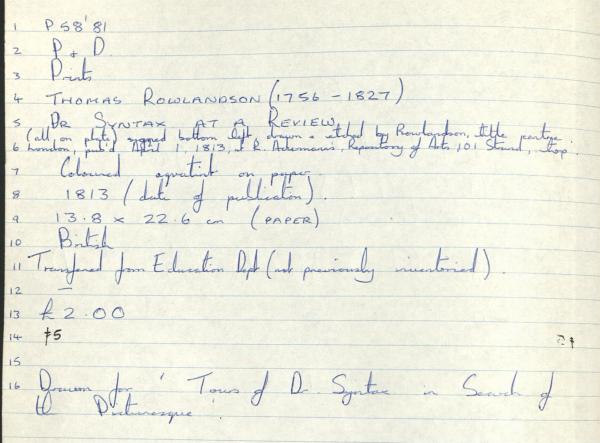 1 P 58'81
2 P + D
3 Prints
4 THOMAS ROWLANDSON (1756 - 1827)
5 DR SYNTAX AT A REVIEW
(all on plate, signed bottom left, drawn & etched by Rowlandson, title centre
6 London, pub'd April 1, 1813, at R. Ackermann's Repository of Arts 101 Strand,
7 Coloured aquatint on paper.
8 1813 (date of publication).
9 13.8 x 22.6 cm (PAPER)
10 British
11 Transferred from Education Dept (not previously inventoried).
12 —
13 £2.00
14 £5
15
16 Drawn for 'Tours of Dr Syntax in Search of
the Picturesque'.